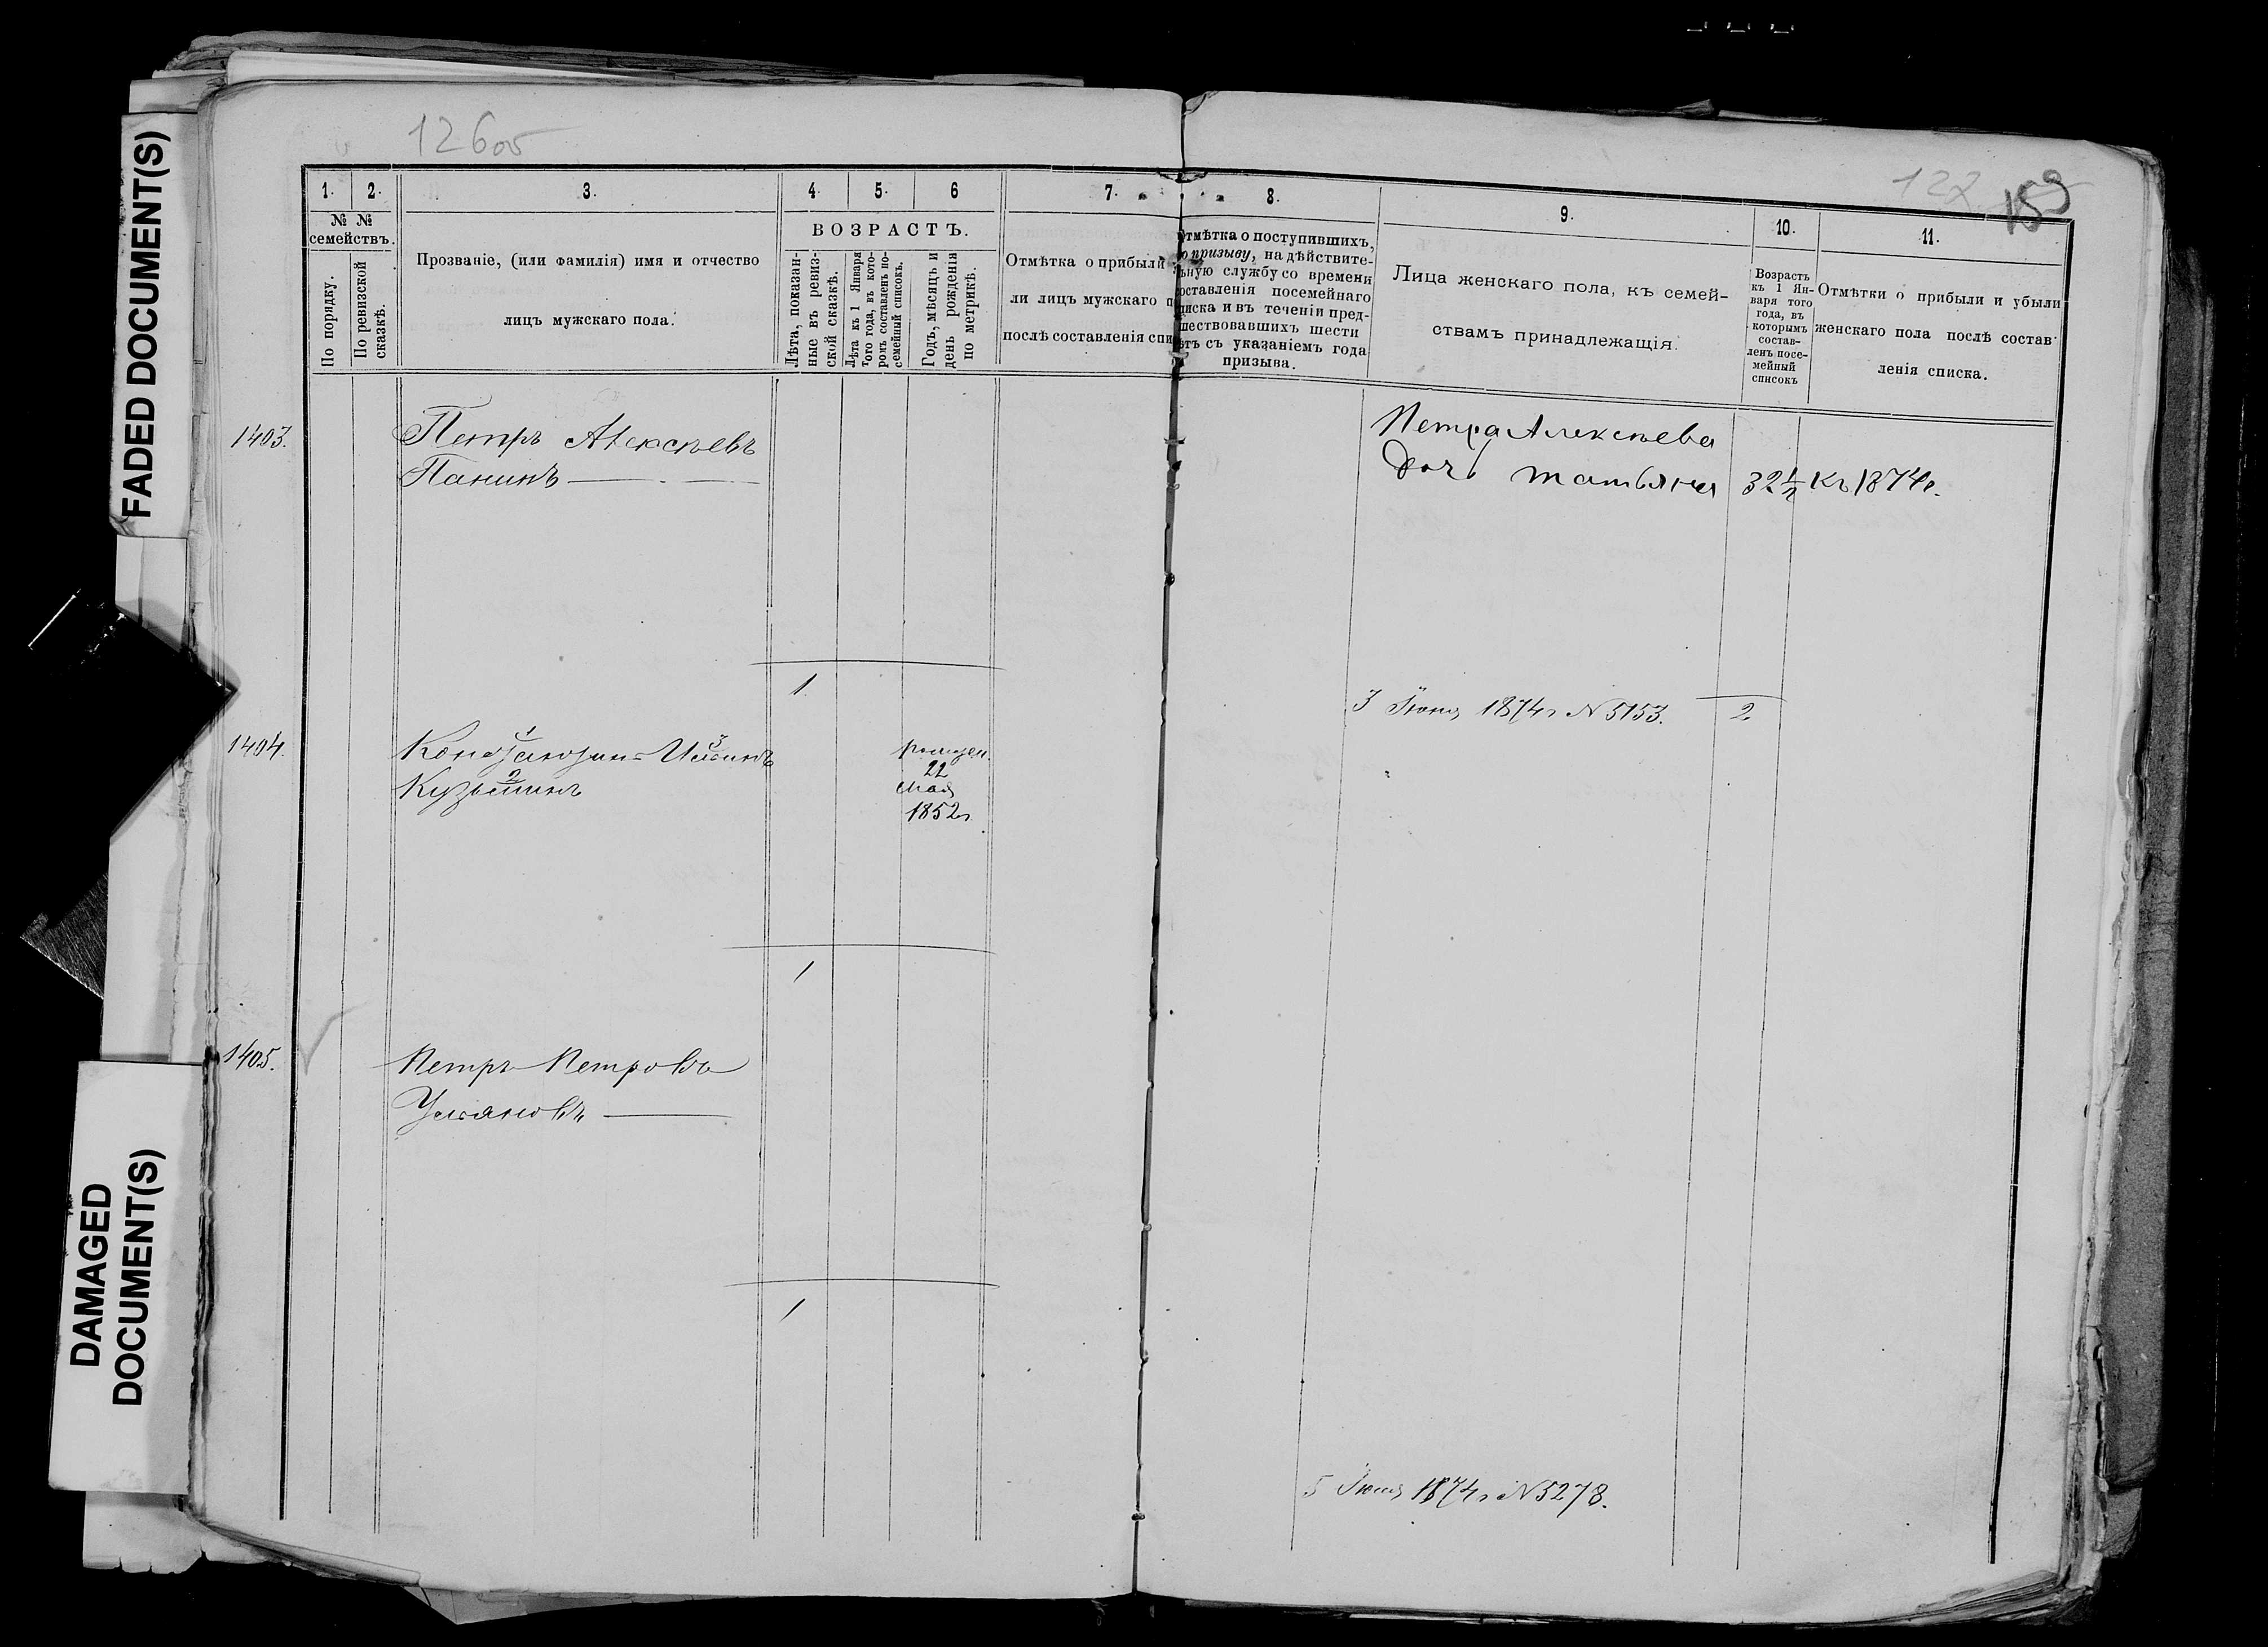 FADED DOCUMENT(S)
DAMAGED
DOCUMENT(S)
122
153
1.
2.
3.
4.
5.
6
7.
8.
9.
10.
11.
№ №
семействъ.
По порядку.
По ревизской
сказкѣ.
Прозваніе, (или фамилія) имя и отчество
лицъ мужскаго пола.
ВОЗРАСТЪ.
Лѣта, показан-
ные въ ревиз-
ской сказкѣ.
Лѣта къ 1 Января
того года, въ кото-
ромъ составленъ по-
семейный списокъ.
Годъ, мѣсяцъ и
день рожденія
по метрикѣ.
Отмѣтка о прибыли
ли лицъ мужскаго п
послѣ составленія спи
Отмѣтка о поступившихъ,
по призыву, на дѣйствите-
льную службу со времени
составленія посемейнаго
списка и въ теченіи пред-
шествовавшихъ шести
лѣтъ съ указаніемъ года
призыва.
Лица женскаго пола, къ семей-
ствамъ принадлежащія.
Возрастъ
къ 1 Ян-
варя того
года, въ
которымъ
состав-
ленъ посе-
мейный
списокъ
Отмѣтки о прибыли и убыли
женскаго пола послѣ состав-
ленія списка.
1403.
Петръ Алексѣевъ
Панинъ
Петра Алексѣева
дочь Татьяна 32½ Къ 1874г.
1
3 Іюня 1874г №5153. 2
1404.
1 3
Константинъ Ильинъ
2
Кузьминъ
рожден.
22
мая
1852г
1
1405.
Петръ Петровъ
Улановъ
1
5 Іюня 1874г №5278.